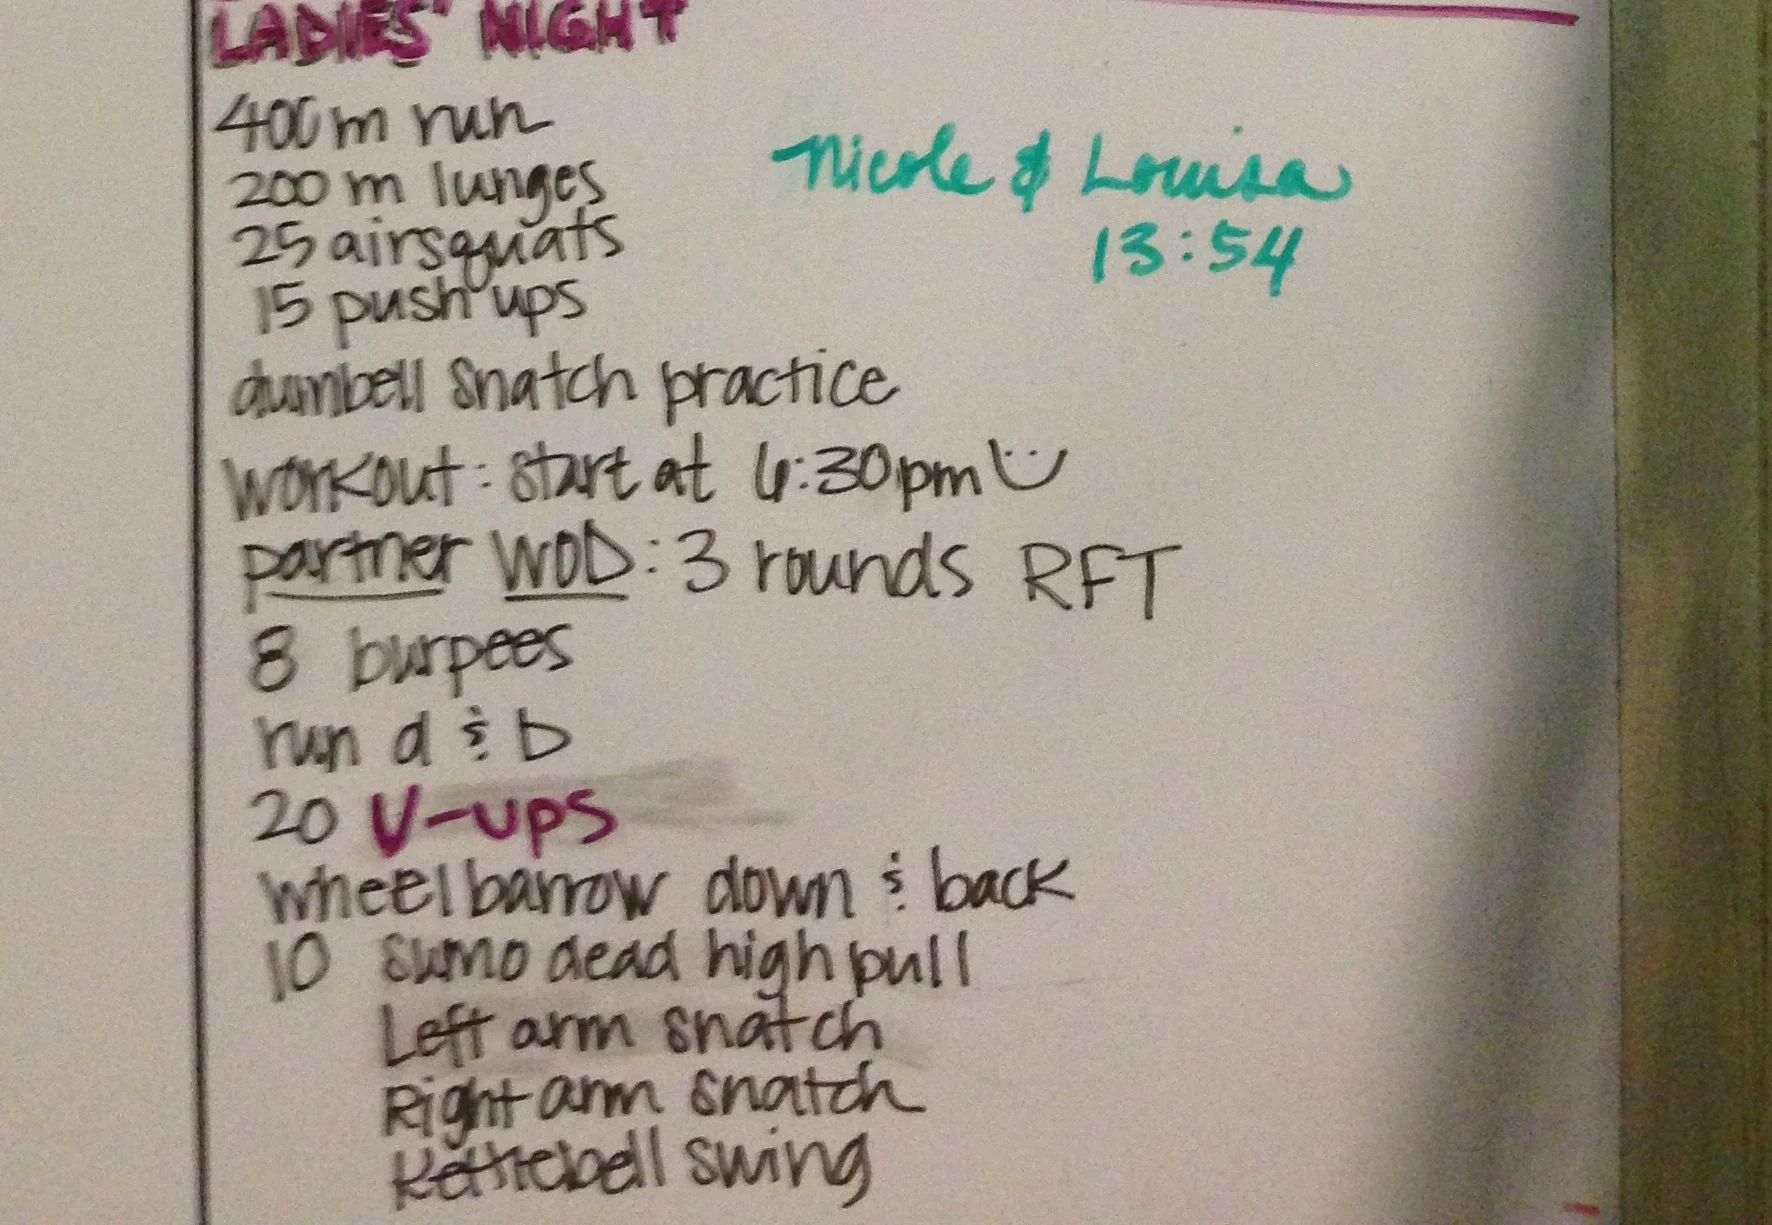 LADIES' NIGHT
400 m run
200 m lunges
25 airsquats
15 push ups
dumbell snatch practice
workout: start at 6:30pm
partner WOD: 3 rounds RFT
8 burpees
run d & b
20 V-ups
wheelbarrow down & back
10 sumo dead high pull
Left arm snatch
Right arm snatch
Kettlebell swing
Nicole & Louisa
13:54